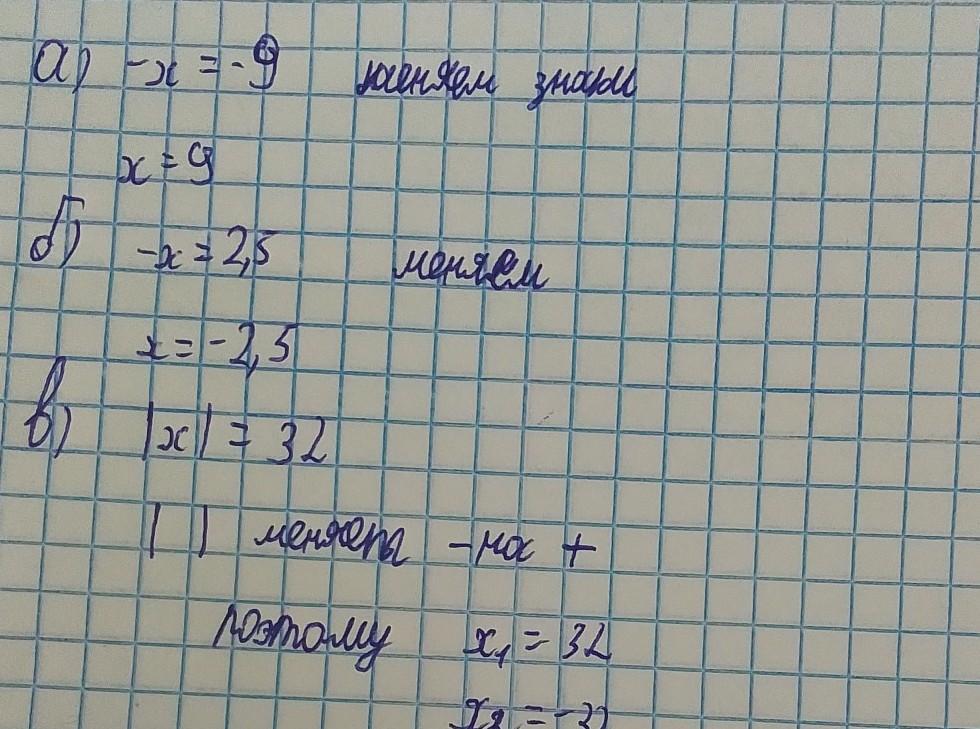 а) -x = -9 меняем знаки
x = 9
б) -x = 2,5 меняем
x = -2,5
в) |x| = 32
| | меняет - на +
поэтому x₁ = 32
x₂ = -32